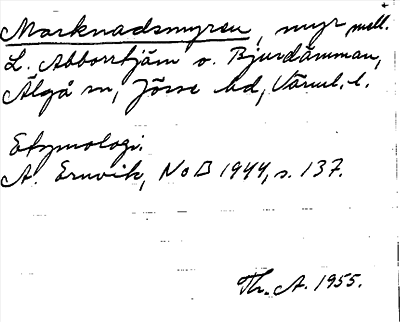 Marknadsmyren, myr mell.
L. Abborrtjärn o. Bjurdämman,
Älgå sn, Jösse hd, Värml. l.
Etymologi.
A. Ernvik, NoB 1944, s. 137.
Th. A. 1955.